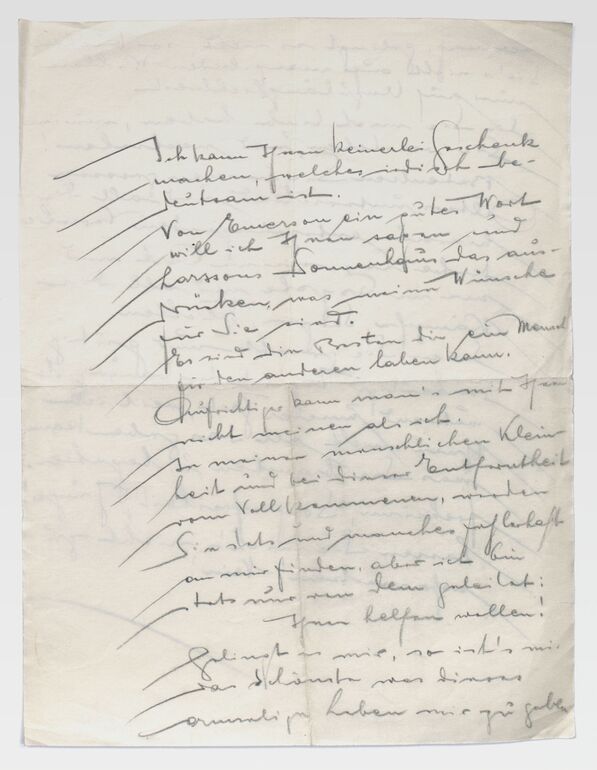 Ich kann Ihnen keinerlei Geschenk
machen, welches irdisch be-
deutsam ist.
Von Emerson ein gutes Wort
will ich Ihnen sagen und
Larssons Sonnenhaus das aus-
drücken, was meine Wünsche
für Sie sind.
Es sind die Besten die ein Mensch
für den anderen haben kann.
Aufrichtiger kann man's mit Ihnen
nicht meinen als ich.
In meiner menschlichen Klein-
heit und bei dieser Entferntheit
vom Vollkommenen, werden
Sie stets und manches fehlerhaft
an mir finden, aber ich bin
stets nur von dem geleitet:
Ihnen helfen wollen!
Gelingt es mir, so ist's mir
das Schönste was dieses
armselige Leben mir zu geben